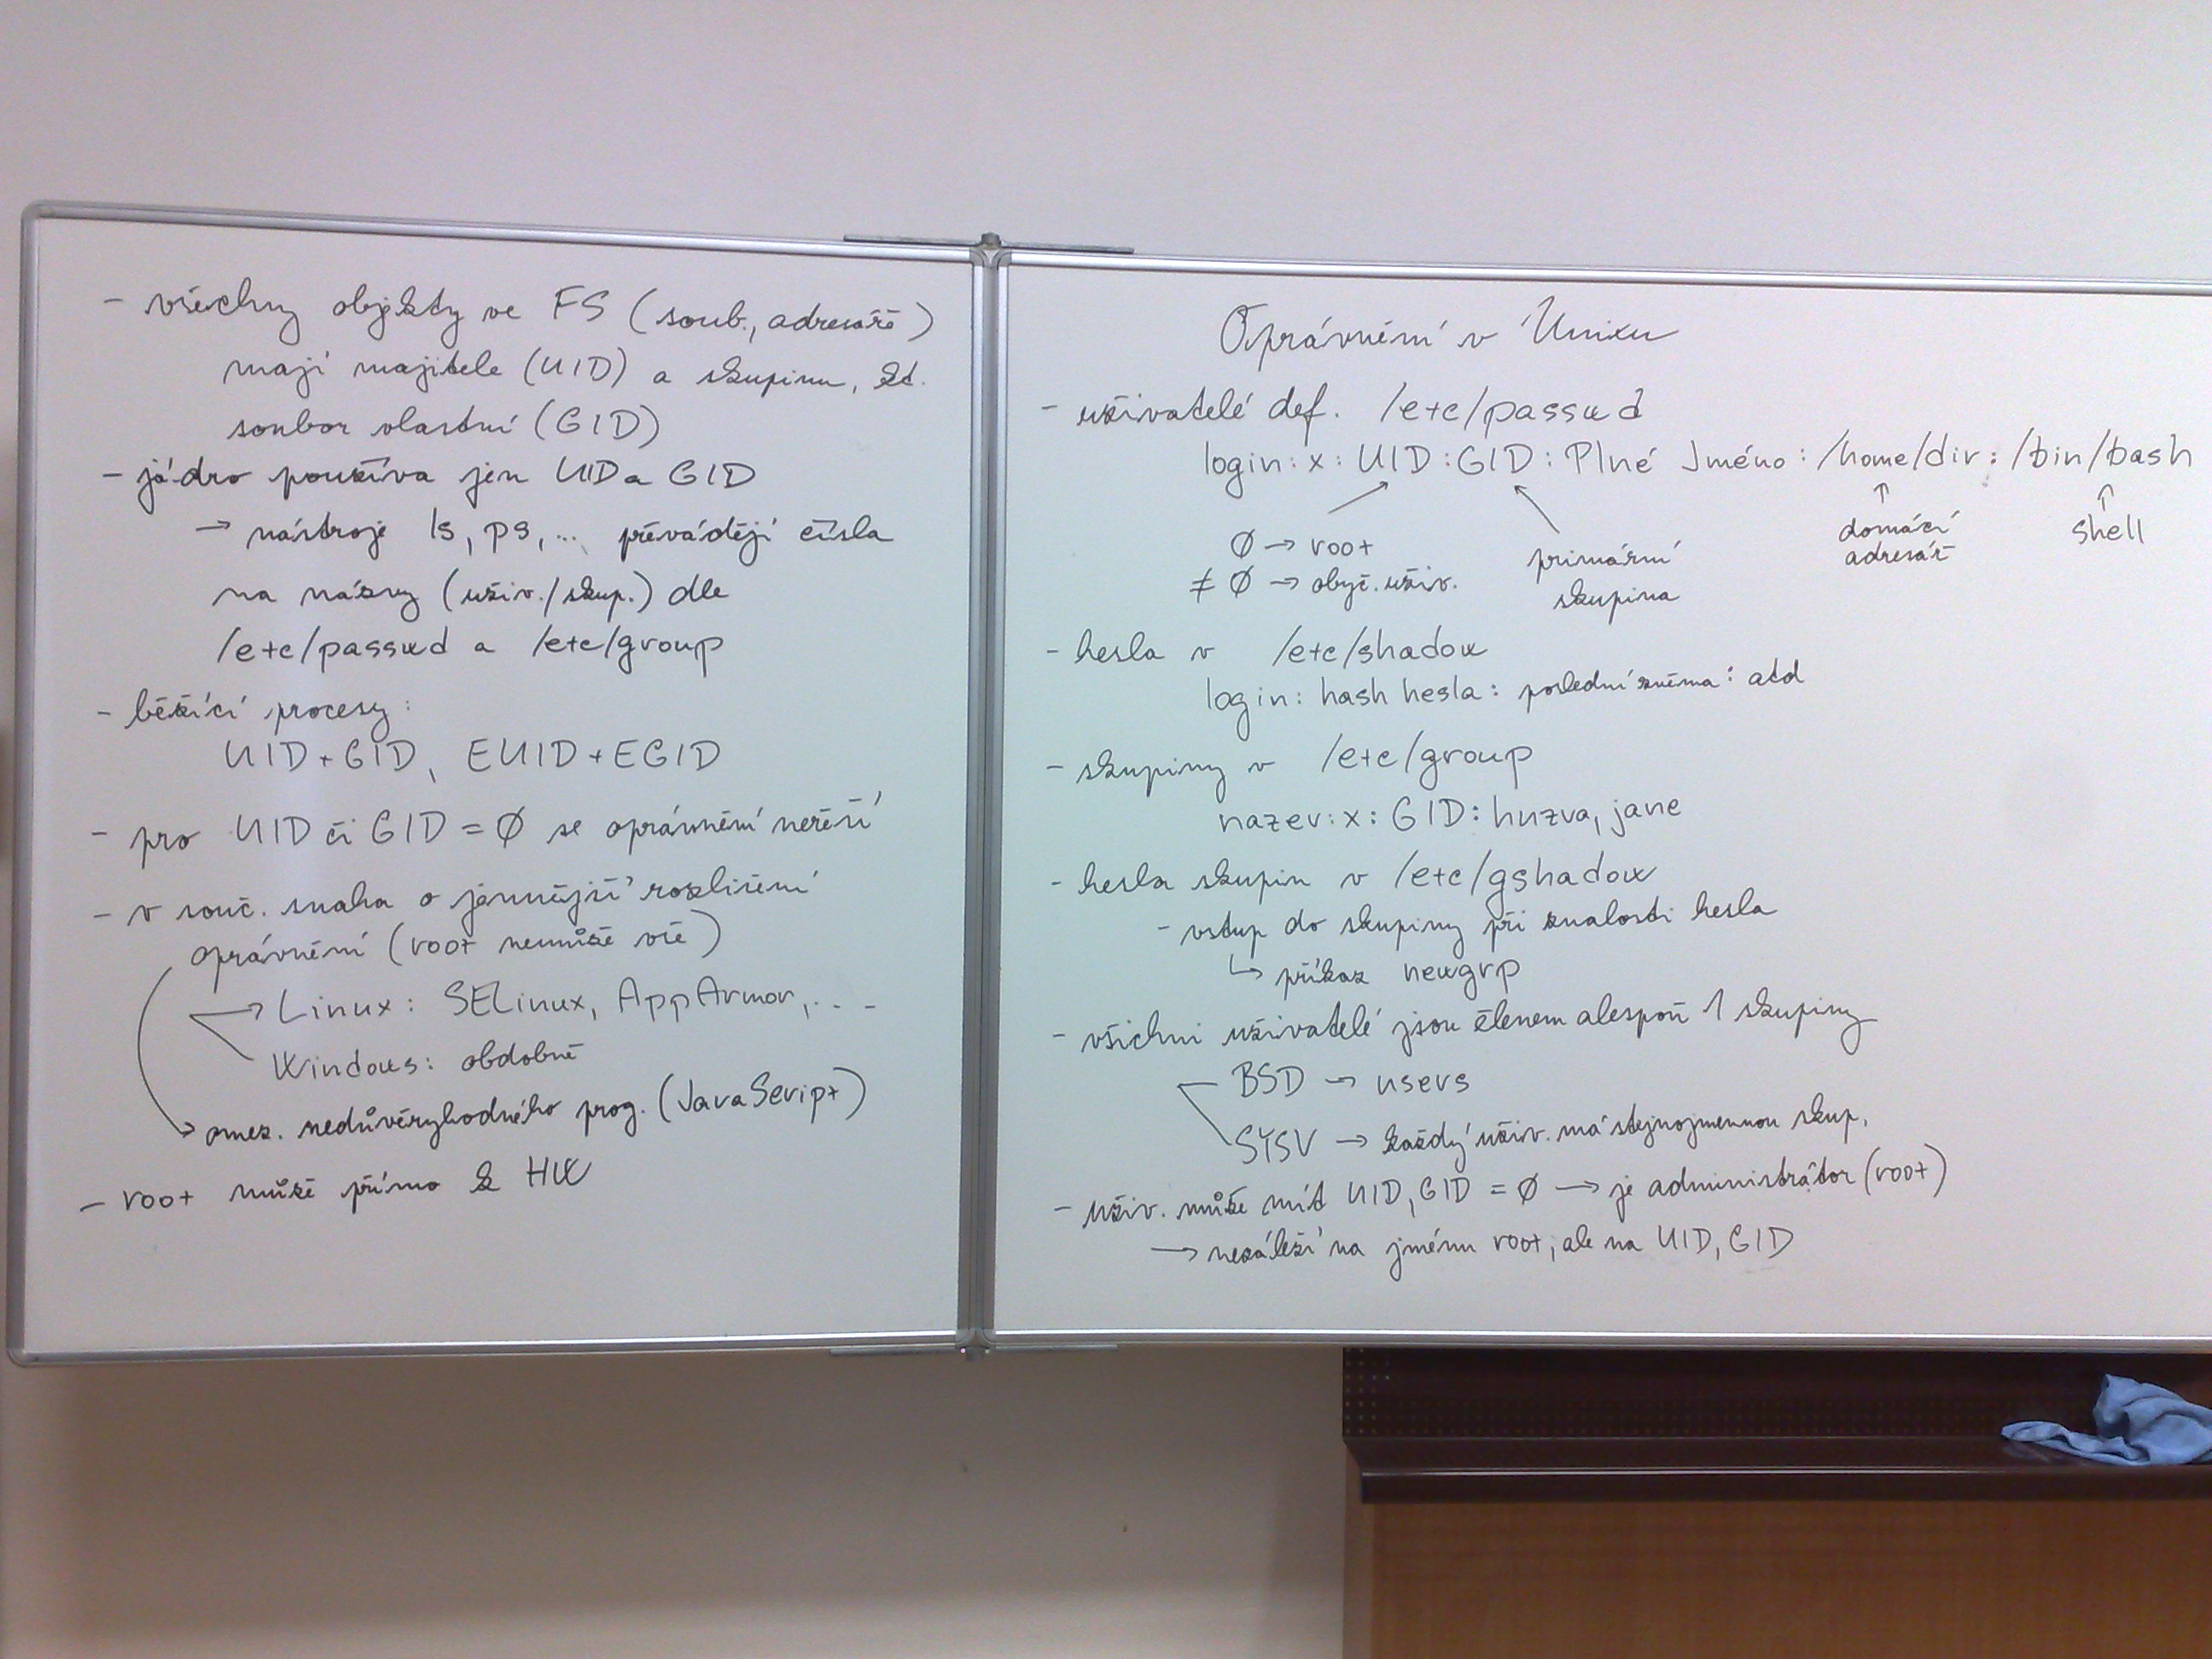 - všechny objekty ve FS (soub., adresáře)
mají majitele (UID) a skupinu, kt.
soubor vlastní (GID)
- jádro používa jen UID a GID
→ nástroje ls, ps, ... převádějí čísla
na názvy (uživ./skup.) dle
/etc/passwd a /etc/group
- běžící procesy:
UID+GID, EUID+EGID
- pro UID či GID = Ø se oprávnění neřeší
- v souč. snaha o jemnější rozlišení
oprávnění (root nemůže vše)
→ Linux: SELinux, AppArmor, ...
Windows: obdobně
→ omez. nedůvěryhodného prog. (JavaScript)
- root může přímo k HW
Oprávnění v Unixu
- uživatelé def. /etc/passwd
login: x: UID: GID: Plné Jméno: /home/dir: /bin/bash
Ø → root
≠ Ø → obyč. uživ.
primární
skupina
domácí
adresář
shell
- hesla v /etc/shadow
login: hash hesla: poslední změna: atd
- skupiny v /etc/group
nazev: x: GID: huzva, jane
- hesla skupin v /etc/gshadow
- vstup do skupiny při znalosti hesla
↳ příkaz newgrp
- všichni uživatelé jsou členem alespoň 1 skupiny
BSD → users
SYSV → každý uživ. má stejnojmennou skup.
- uživ. může mít UID, GID = Ø → je administrátor (root)
→ nezáleží na jménu root, ale na UID, GID